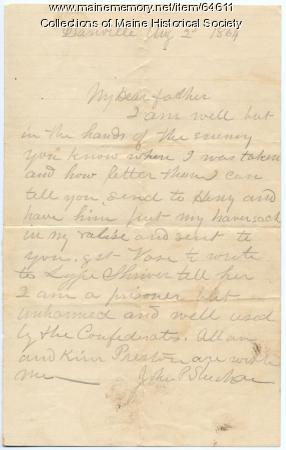 www.mainememory.net/item/64611
Collections of Maine Historical Society
Danville Aug 2d 1864
My Dear father
I am well but
in the hands of the enemy
you know when I was taken
and how better than I can
tell you. send to Heny and
have him put my haversack
in my valise and sent to
you. get Vose to write
to Lizzie Shriver tell her
I am a prisoner but
unharmed and well used
by the Confederates. Allan
and Kinn Preston are with
me
John P.